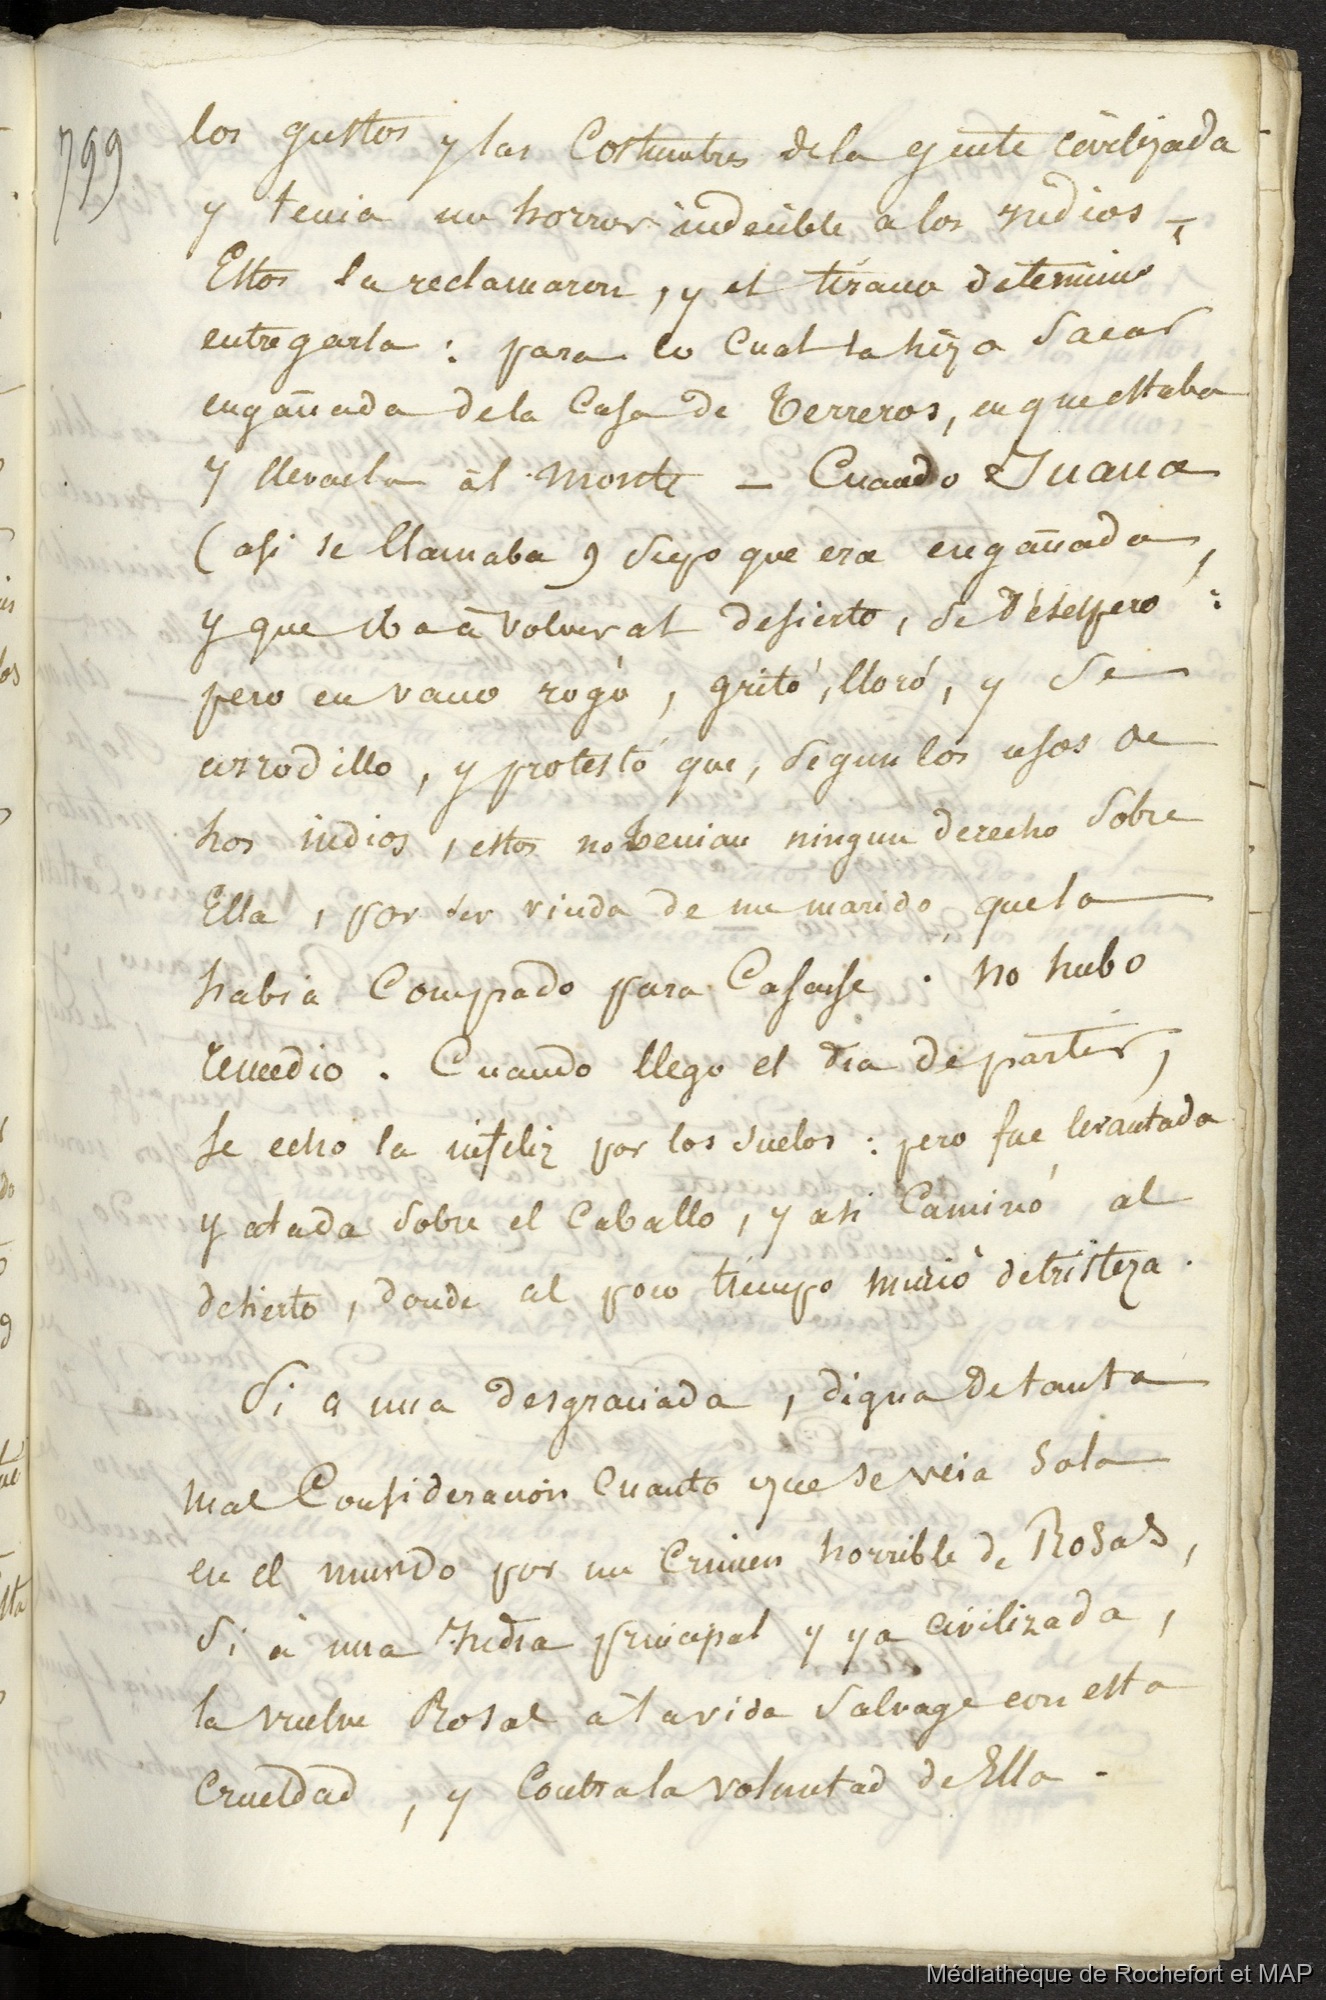 799
los gustos y las Costumbres dela gente civilizada
y tenia un horror indecible a los Indios -
Estos la reclamaron, y el tirano determino
entregarla : para lo Cual la hizo Sacar
engañada dela Casa de Terreros, en que estaba
y llevarla al monte - Cuando Juana
(asi se llamaba) Supo que era engañada,
y que iba à volver al desierto, se désesperó :
pero en vano rogó, gritó, lloró, y Se
arrodillo, y protestó que, Segun los usos de
los indios, estos no tenian ningun derecho Sobre
Ella, por ser viuda de un marido, que la
habia Comprado para Casarse . no hubo
remedio . Cuando llego el dia de partir,
Se echo la infeliz por los suelos : pero fue levantada
y atada Sobre el Caballo, y asi Caminó al
desierto, donde al poco tiempo murió de tristeza .
Si a una desgraciada, digna de tanta
mas Consideracion Cuanto que se veia Sola
en el mundo por un Crimen horrible de Rosas,
Si à una India principal y ya civilizada,
la vuelve Rosas à la vida Salvage con esta
Crueldad, y Contra la voluntad de Ella .
Médiathèque de Rochefort et MAP